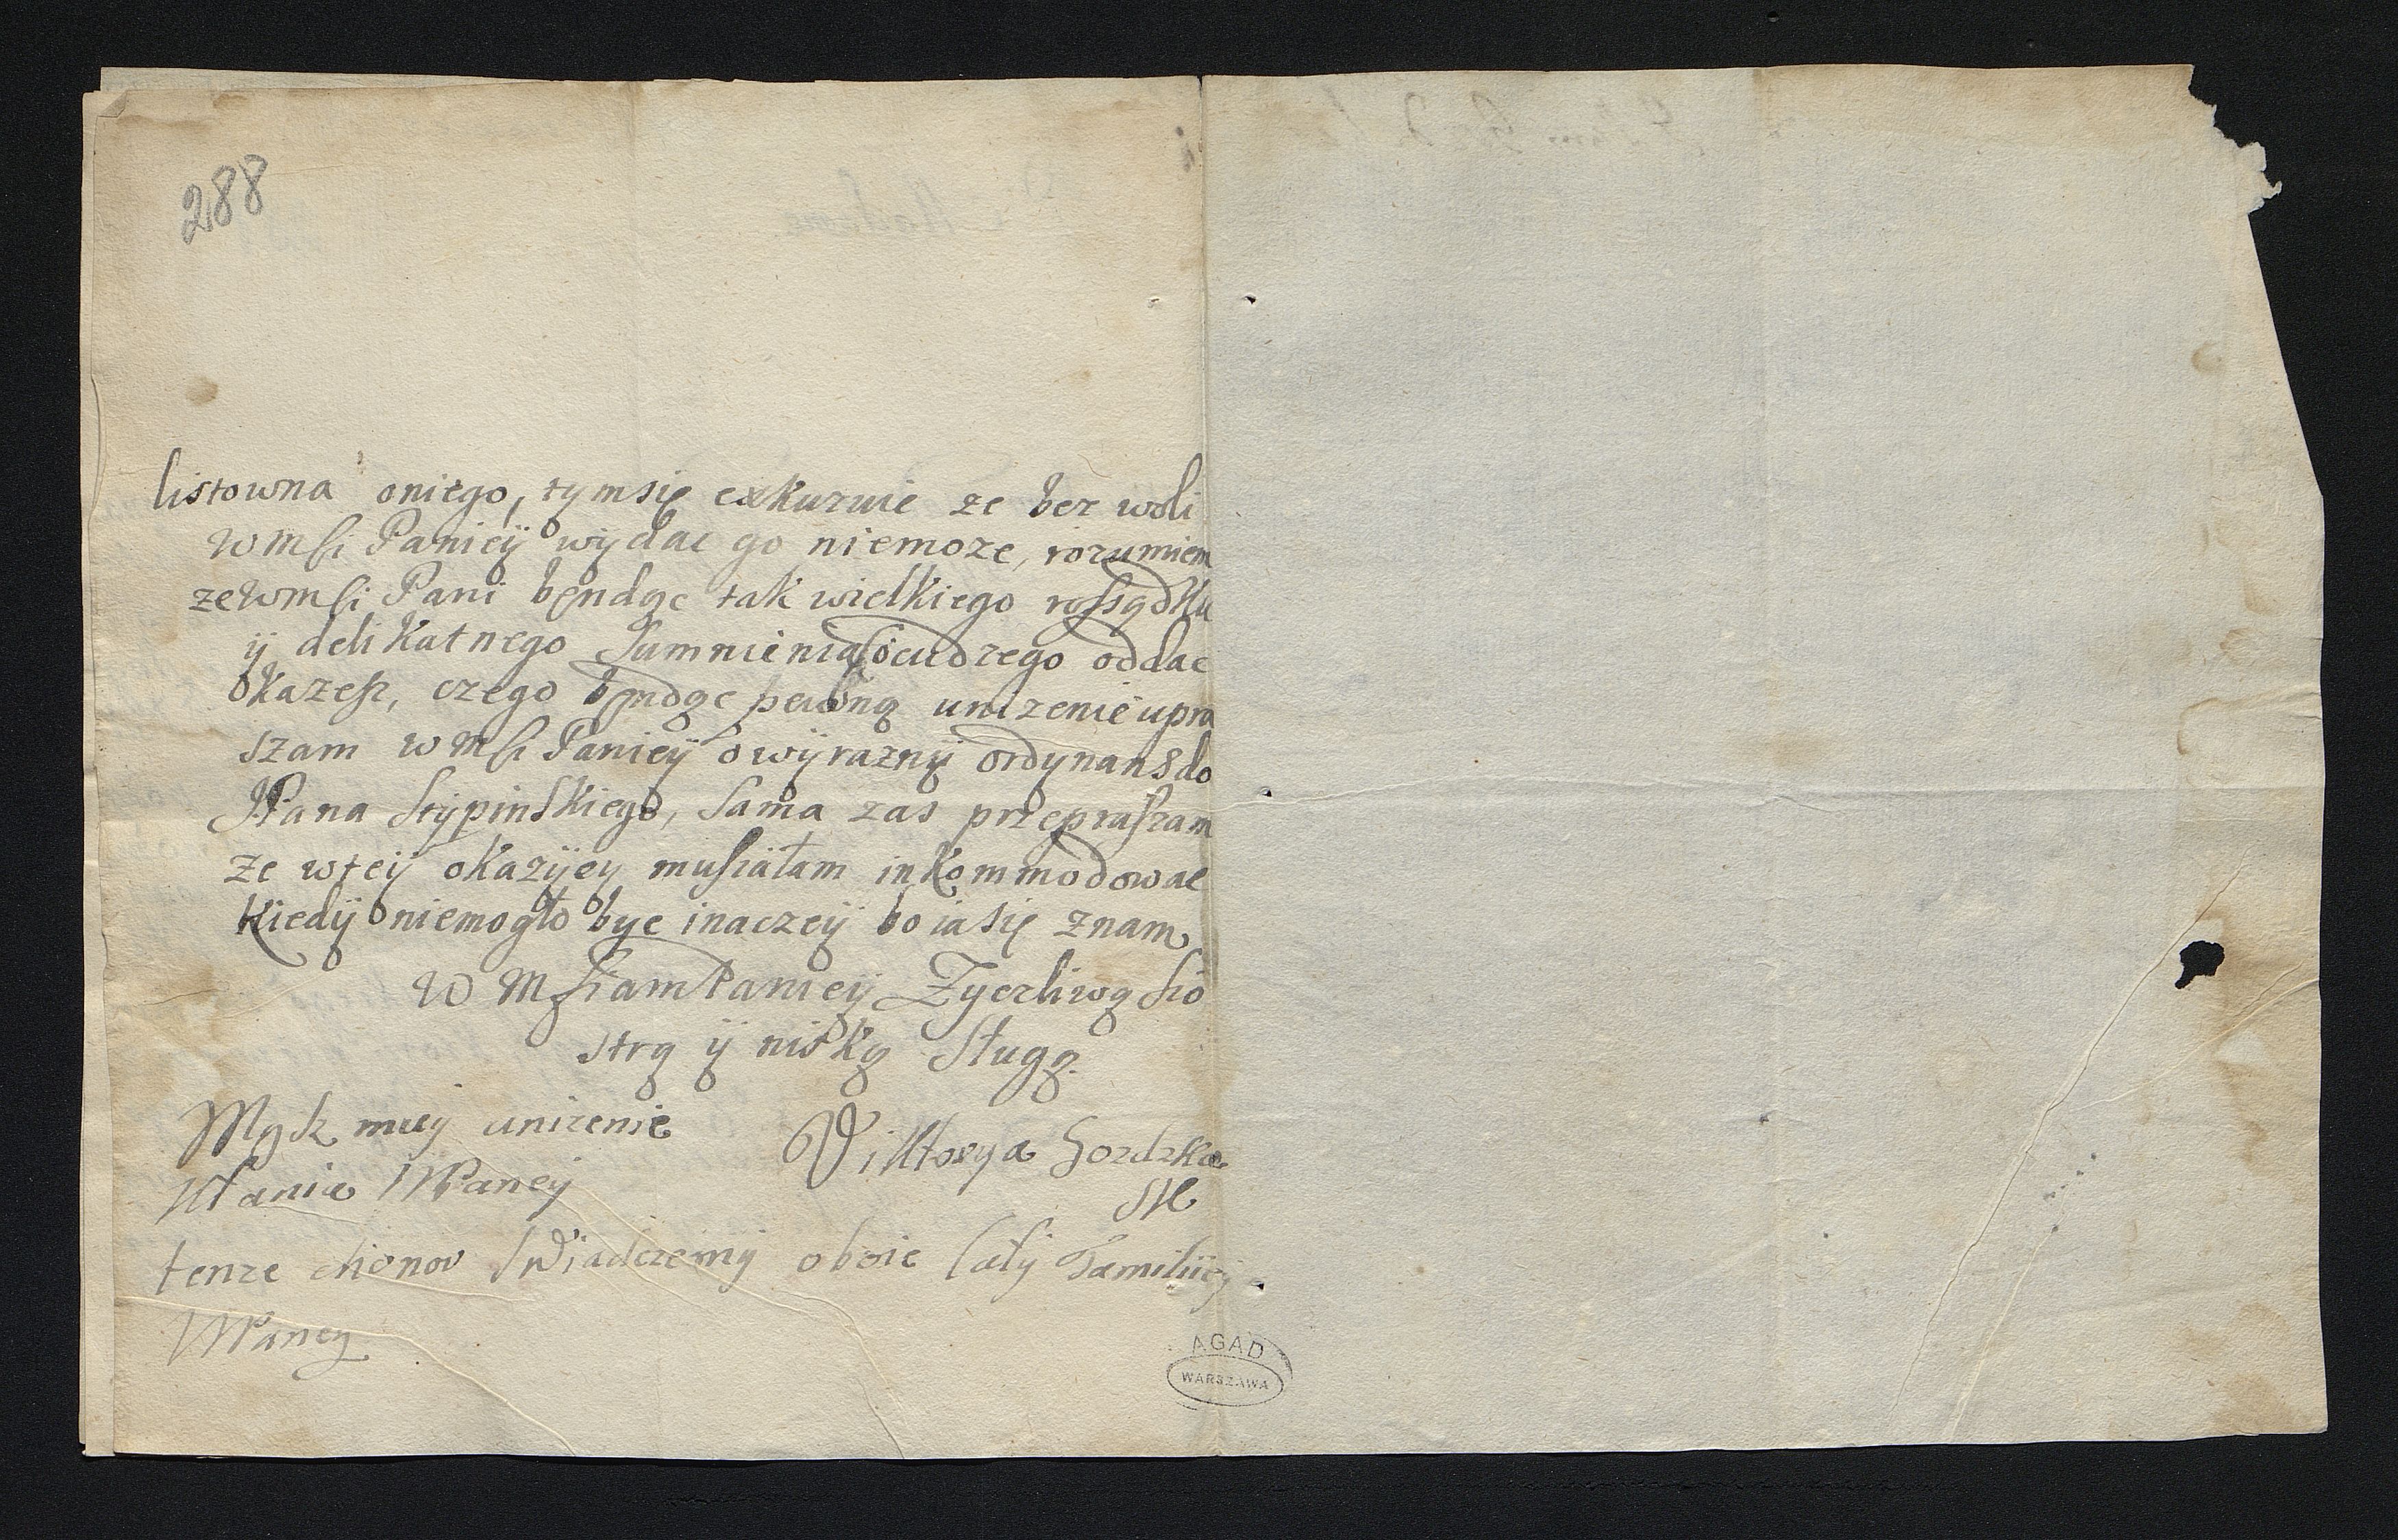 288
listowna oniego, tymsię exkuzuie ze bez woli
wmsci Panieÿ wÿdac go niemoze, rozumiem
zewmsci Pani bęndąc tak wielkiego rossądku
ÿ delikatnego Sumnienia cudzego oddac
okazesz, czego będąc pewną unizenie upra
szam wmsci Panieÿ owÿraznÿ ordynans do
JPana Stÿpinskiego, Sama zas przepraszam
ze wteÿ okazÿey musiałam inkommodowac
Kiedÿ niemogło byc inaczeÿ bo ia się znam
Panieÿ Zyczliwą sio
strą ÿ niską Sługą.
Mąz muÿ unizenie
Wiktorya Gozdzka
kłania WPaneÿ
tenze chonor Swiadczemÿ oboie całÿ Familiieÿ
WPaney
AGAD
WARSZAWA